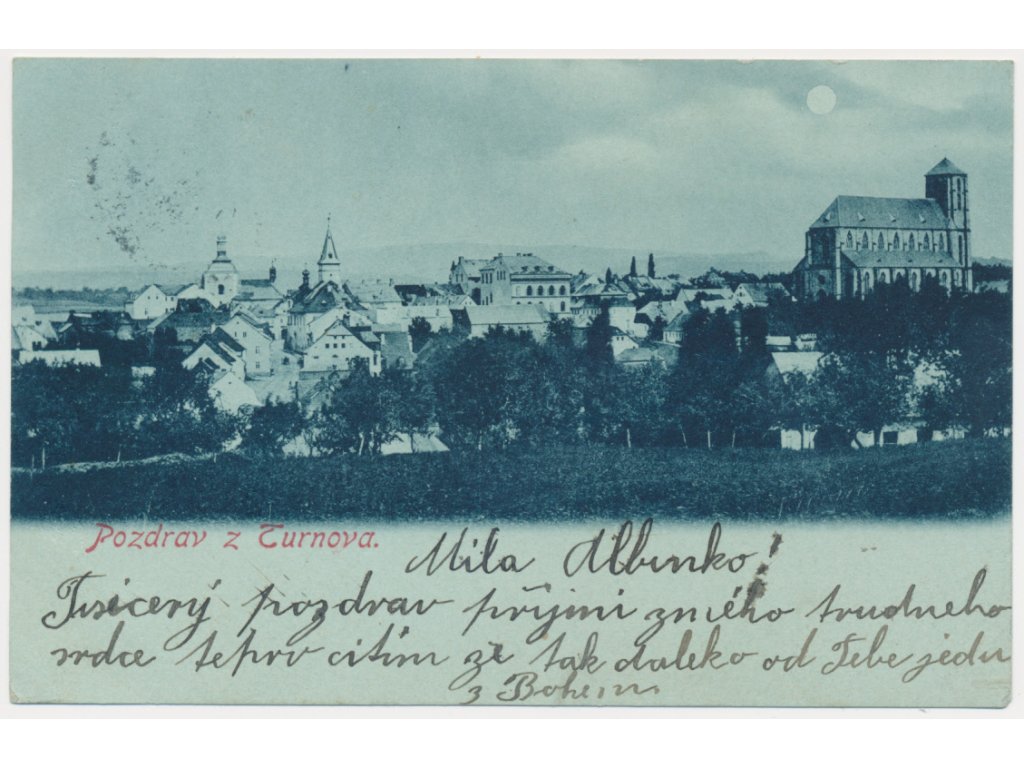 Pozdrav z Turnova.
Mila Albinko!
Tisicerý pozdrav přijmi zmého trudneho
srdce teprv citím že tak daleko od Tebe jedu
z Bohem